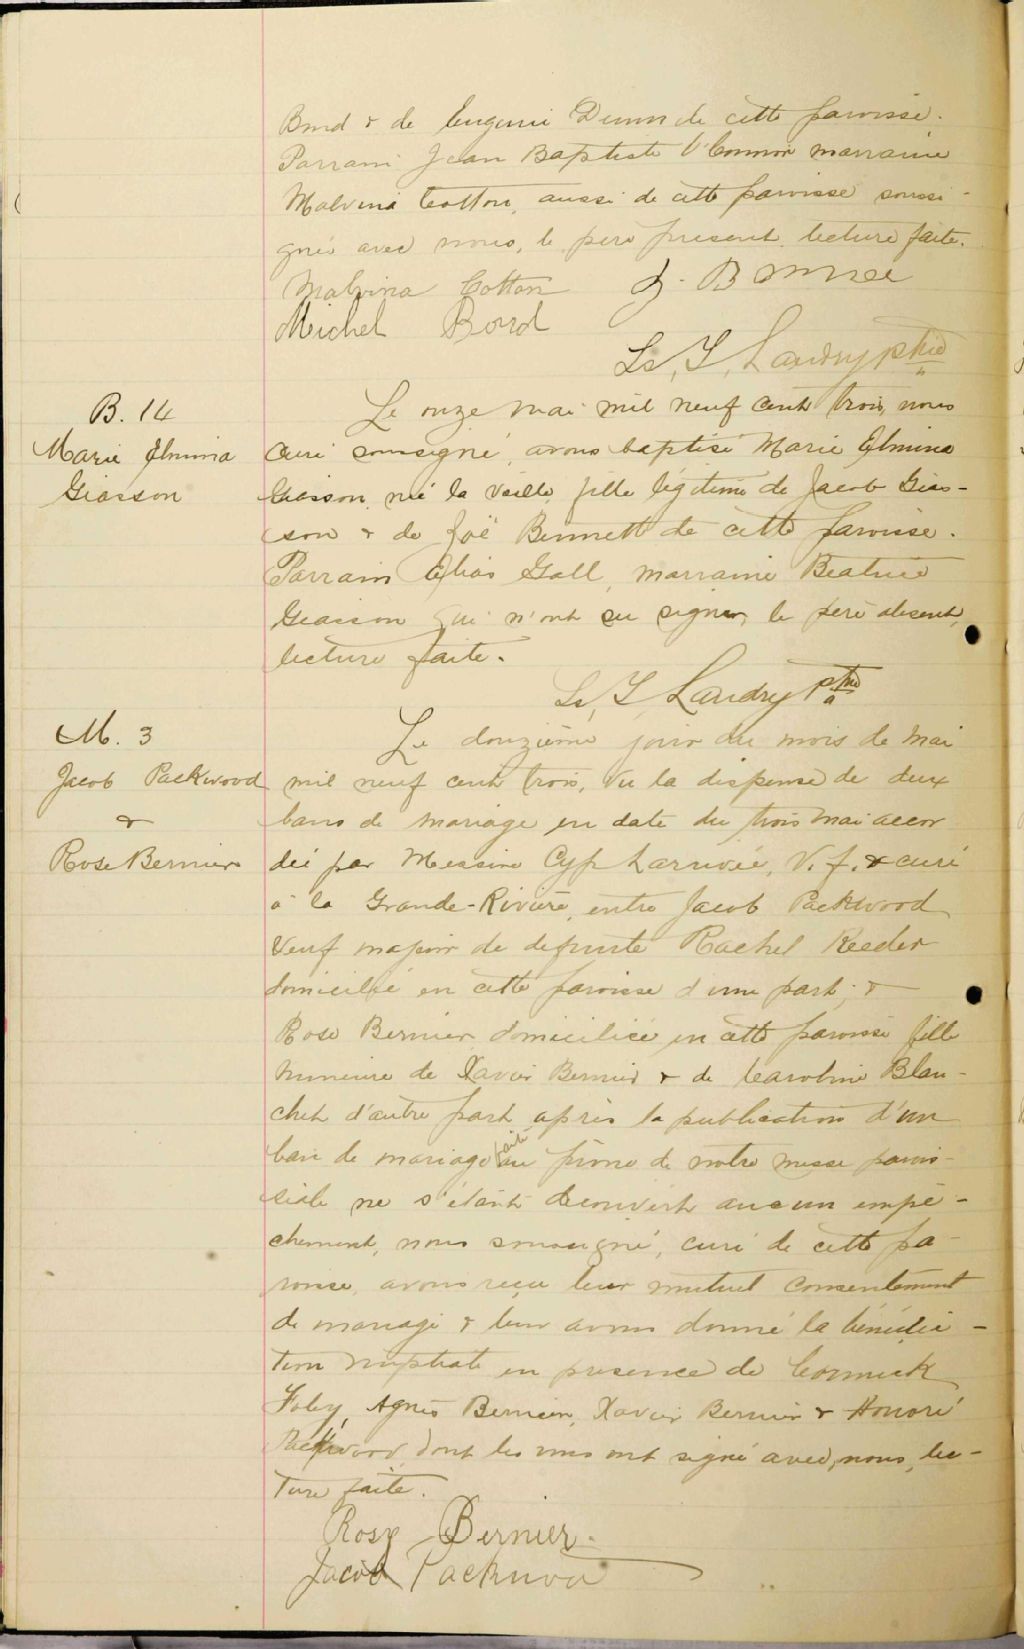 Bond & de Eugenie Dunn de cette paroisse.
Parrain Jean Baptiste O'Connor marraine
Malvina Cotton, aussi de cette paroisse soussi-
gnés avec nous, le père présent lecture faite.
Malvina Cotton J. B
Michel Bond
Ls, S, Landry ptre
B. 14
Marie Elmina
Giasson
Le onze mai mil neuf cent trois, nous
curé soussigné, avons baptisé Marie Elmina
Giasson, née la veille, fille légitime de Jacob Gias-
son & de Zoë Bennett de cette paroisse.
Parrain Elias Gall, marraine Beatrice
Giasson qui n'ont su signer, le père absent,
lecture faite.
Ls, S, Landry ptre
M. 3
Jacob Packwood
&
Rose Bernier
Le douzième jour du mois de mai
mil neuf cent trois, vu la dispense de deux
bans de mariage en date du trois mai accor
dée par Messire Cyp Larrivée, V. f. & curé
à la Grande-Rivière, entre Jacob Packwood
veuf majeur de defunte Rachel Reeder
domicilié en cette paroisse d'une part; &
Rose Bernier domiciliée en cette paroisse fille
mineure de Xavier Bernier & de Caroline Blan-
chet d'autre part, après la publication d'un
ban de mariage fait au prône de notre messe parois-
siale ne s'étant découvert aucun empê-
chement, nous soussigné, curé de cette pa-
roisse, avons reçu leur mutuel consentement
de mariage & leur avons donné la bénédic-
tion nuptiale en presence de Cormick
Foley, Agnès Bernier, Xavier Bernier & Honoré
Packwood, dont les uns ont signé avec nous, lec-
ture faite.
Rose Bernier.
Jacob Packwood